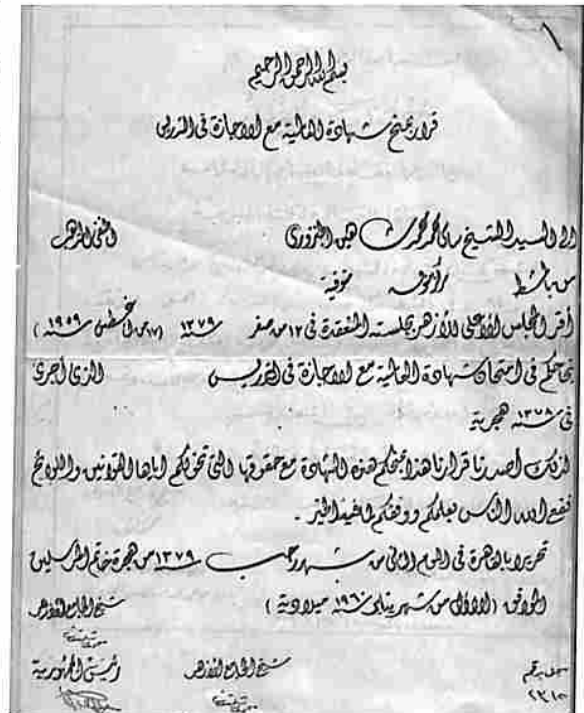 ١
بسم الله الرحمن الرحيم
قرار بمنح شهادة العالمية مع الاجازة فى التدريس
الى السيد الشيخ سامى محمد محمد شاهين الحنفى المذهب
من مركز منوفية
أقر المجلس الأعلى للأزهر بجلسته المنعقدة فى ١٢ من صفر سنة ١٣٧٩ (١٧ من اغسطس سنة ١٩٥٩)
نجاحكم فى امتحان شهادة العالمية مع الاجازة فى التدريس الذى أجرى
فى سنة ١٣٧٨ هجرية
لذلك أصدرنا قرارنا هذا بمنحكم هذه الشهادة مع حقوقها التى تخولكم اياها القوانين واللوائح
نفع الله الناس بعلمكم ووفقكم لما فيه الخير -
تحريرا بالقاهرة فى اليوم الثانى من شهر رجب سنة ١٣٧٩ من هجرة خاتم المرسلين
الموافق (الاول من شهر يناير سنة ١٩٦٠ ميلادية)
شيخ الجامع الأزهر
سجل برقم شيخ الجامع الأزهر رئيس الجمهورية
٢٣١٥